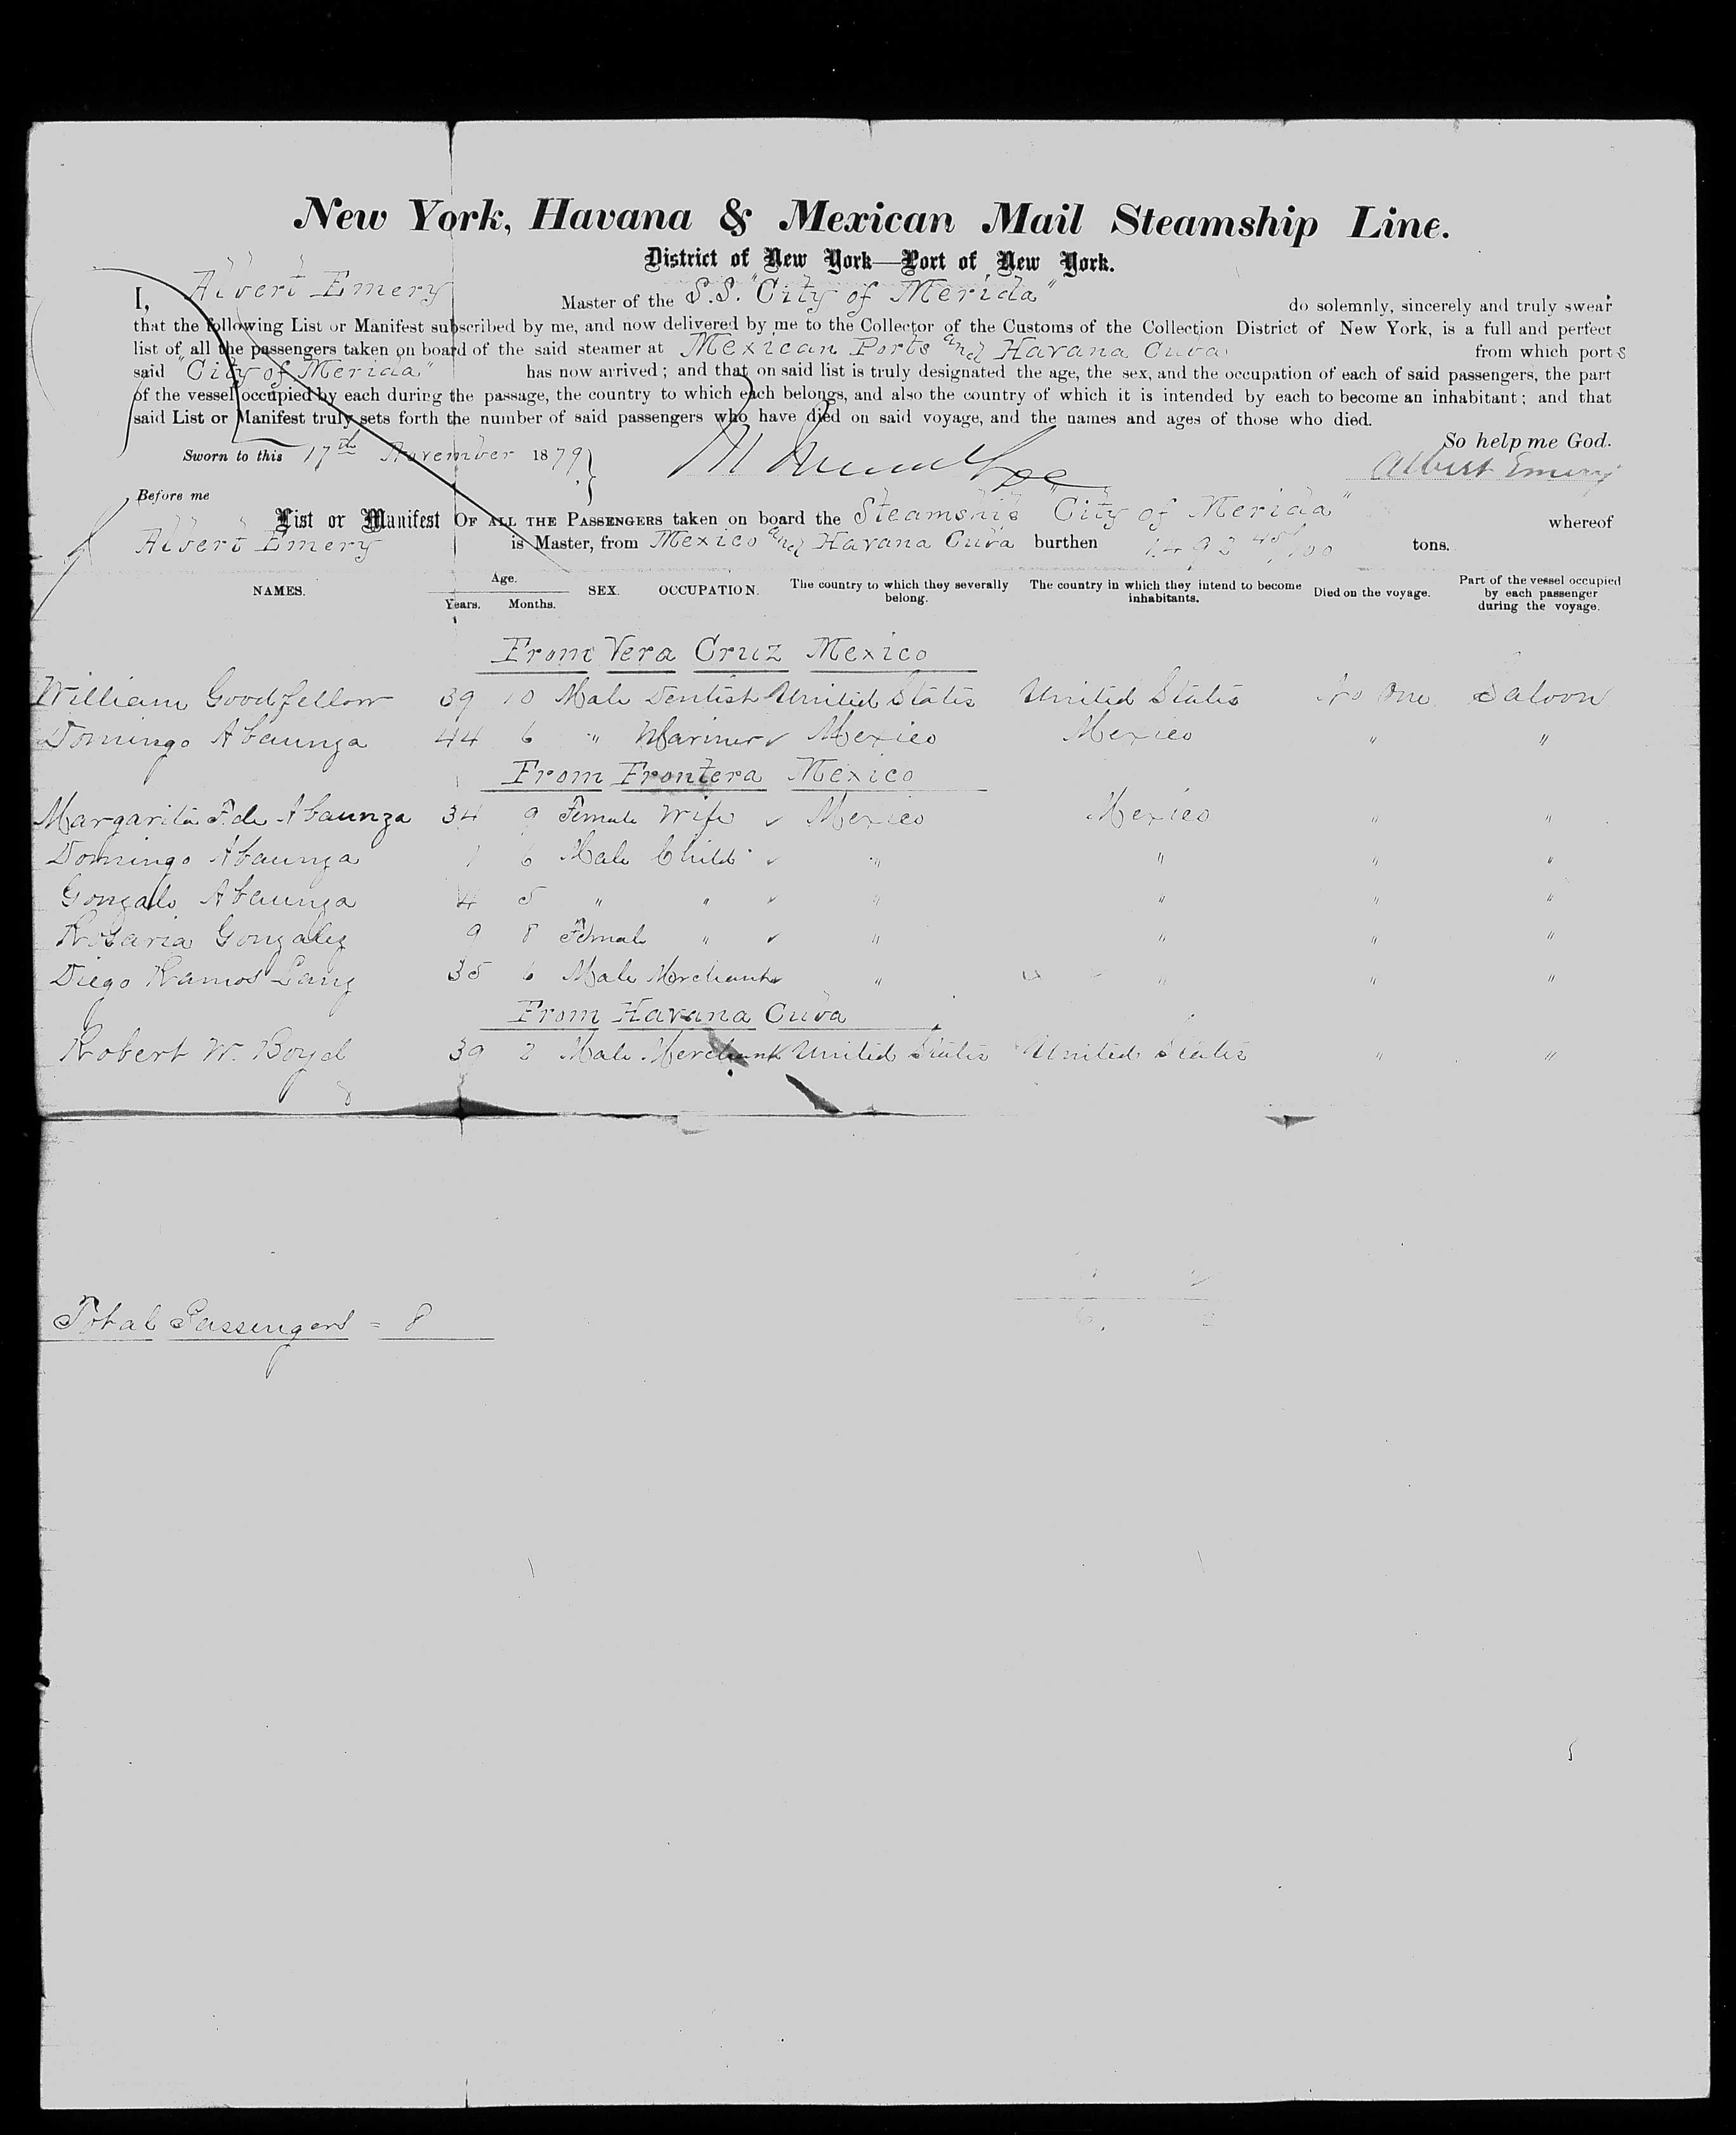 New York, Havana & Mexican Mail Steamship Line.
District of New York—Port of New York.
I, Albert Emery Master of the S.S. "City of Merida" do solemnly, sincerely and truly swear
that the following List or Manifest subscribed by me, and now delivered by me to the Collector of the Customs of the Collection District of New York, is a full and perfect
list of all the passengers taken on board of the said steamer at Mexican Ports and Havana Cuba from which ports
said "City of Merida" has now arrived; and that on said list is truly designated the age, the sex, and the occupation of each of said passengers, the part
of the vessel occupied by each during the passage, the country to which each belongs, and also the country of which it is intended by each to become an inhabitant; and that
said List or Manifest truly sets forth the number of said passengers who have died on said voyage, and the names and ages of those who died.
So help me God.
Sworn to this 17th November 1879 Albert Emery
Before me
List or Manifest OF ALL THE PASSENGERS taken on board the Steamship "City of Merida" whereof
Albert Emery is Master, from Mexico and Havana Cuba burthen 1492 45/100 tons.
NAMES. Age. Years. Months. SEX. OCCUPATION. The country to which they severally belong. The country in which they intend to become inhabitants. Died on the voyage. Part of the vessel occupied by each passenger during the voyage.
From Vera Cruz Mexico
William Goodfellow 39 10 Male Dentist United States United States No One Saloon
Domingo Abaunza 44 6 " Mariner Mexico Mexico " "
From Frontera Mexico
Margarita F. de Abaunza 34 9 Female Wife Mexico Mexico " "
Domingo Abaunza 1 6 Male Child " " " "
Gonzalo Abaunza 4 5 " " " " " "
Rosaria Gonzalez 9 8 Female " " " " "
Diego Ramos Lanz 35 6 Male Merchant " " " "
From Havana Cuba
Robert W. Boyd 39 2 Male Merchant United States United States " "
Total Passengers = 8